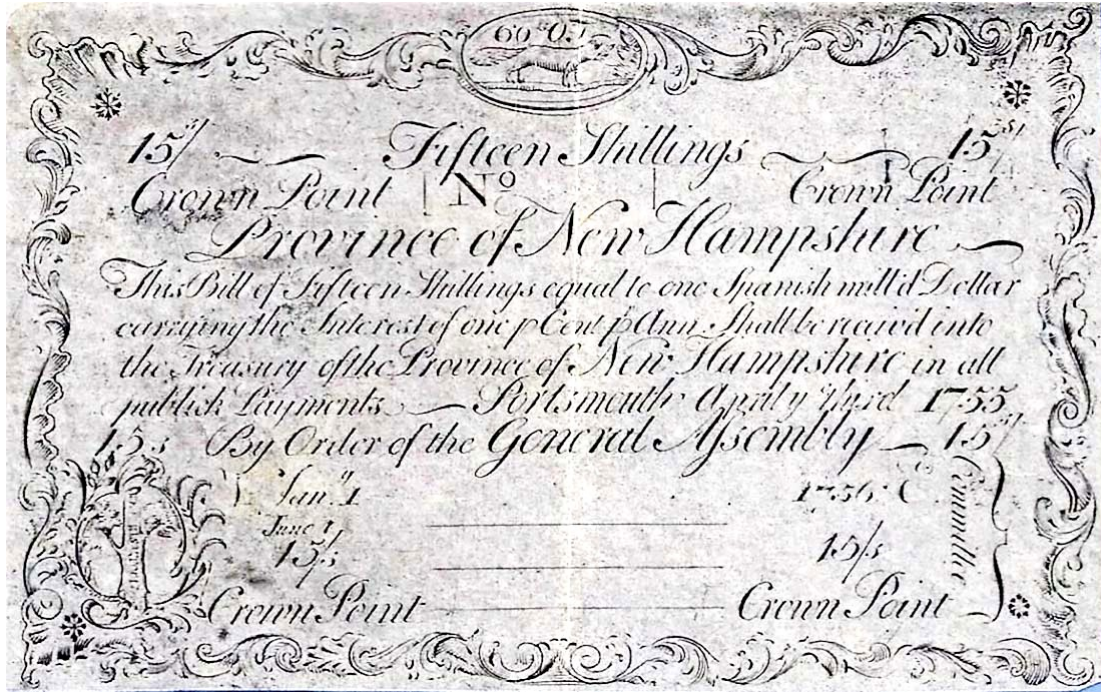 15/ Fifteen Shillings 15
Crown Point No Crown Point
Province of New Hampshire
This Bill of Fifteen Shillings equal to one Spanish mill'd Dollar
carrying the Interest of one p Cent p Ann. Shall be reciev'd into
the Treasury of the Province of New Hampshire in all
publick Payments Portsmouth April y Third 1755
15s By Order of the General Assembly 15
Jan. y 1 1756
June
15/s 15/s
Committee
Crown Point Crown Point